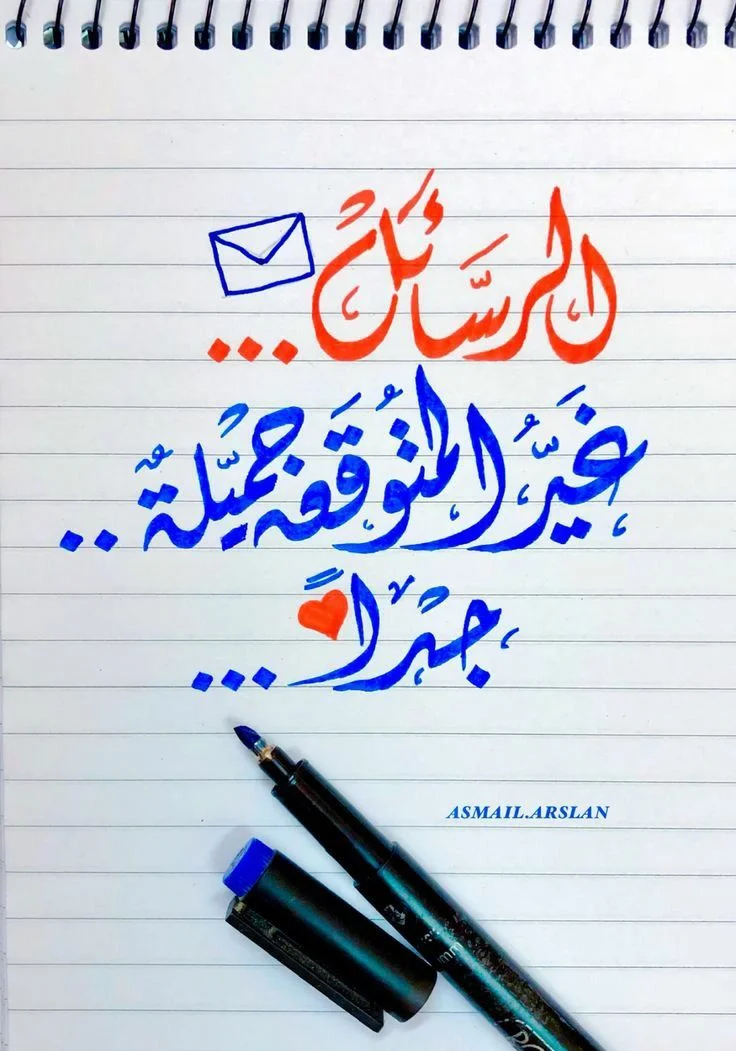 الرسَّائَل...
غَيرُّ المتُوقَعه جميَّلةٌ..
جداً...
ASMAIL.ARSLAN
mm